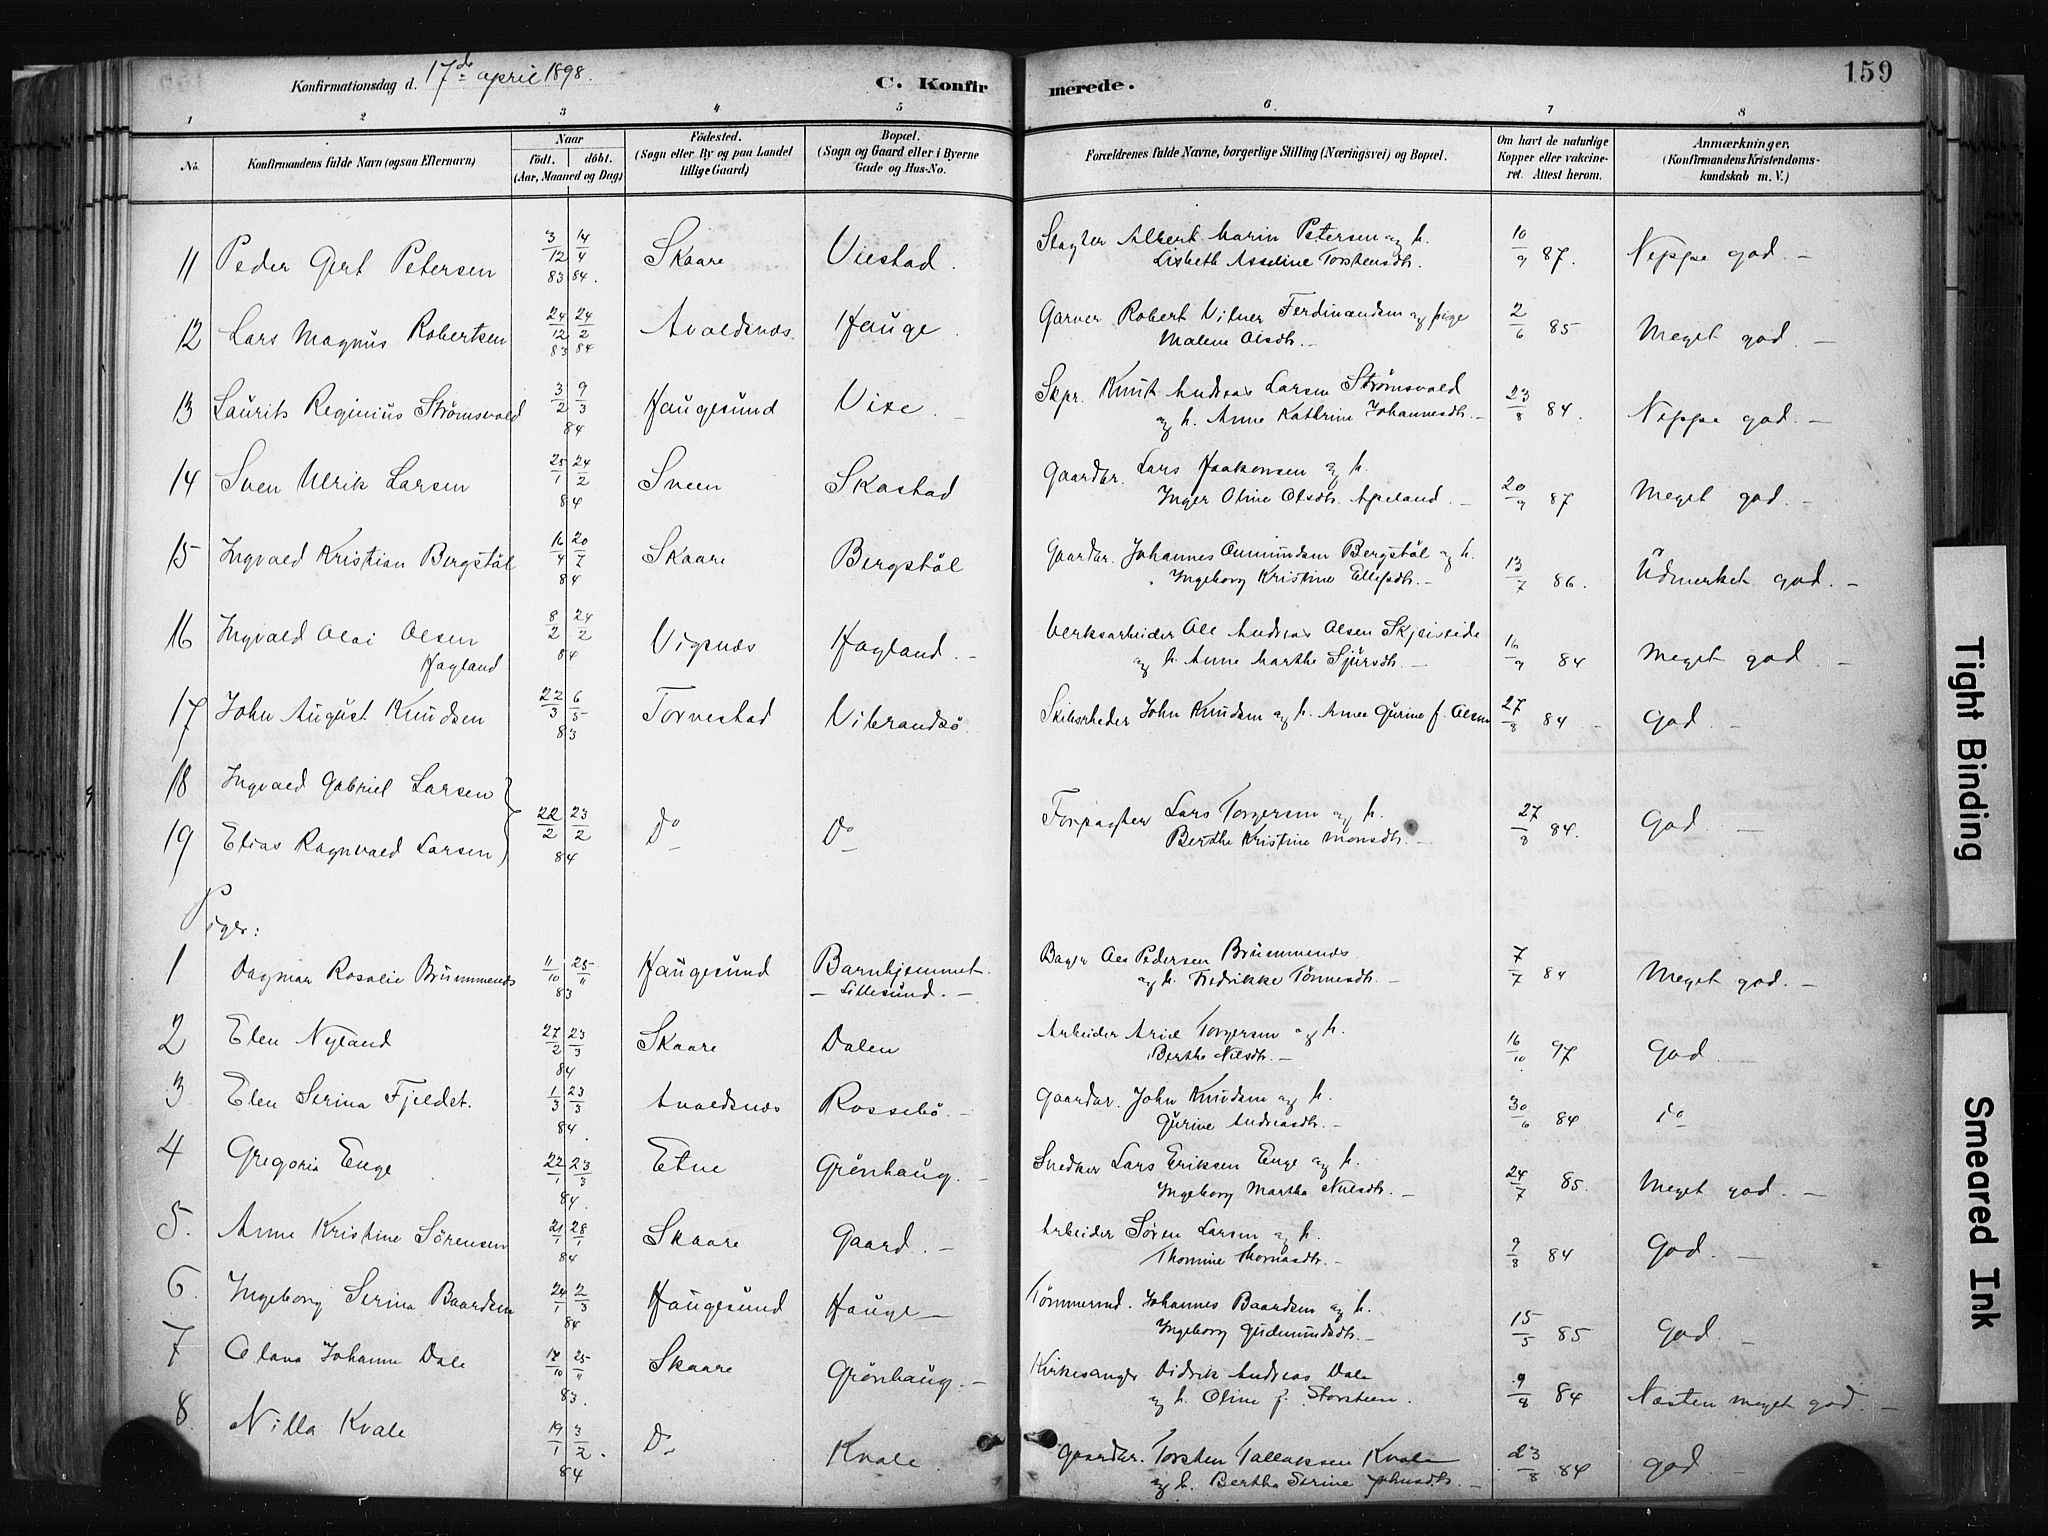 Konfirmationsdag d. 17de april 1898.
C. Konfirmerede.
159
1 2 3 4 5 6 7 8
No. Konfirmandens fulde Navn (ogsaa Efternavn) Naar födt. döbt. (Aar, Maaned og Dag) Födested. (Sogn eller By og paa Landet tillige Gaard) Bopæl. (Sogn og Gaard eller i Byerne Gade og Hus-No. Forældrenes fulde Navne, borgerlige Stilling (Næringsvei) og Bopæl. Om havt de naturlige Kopper eller vakcineret. Attest herom. Anmærkninger. (Konfirmandens Kristendomskundskab m. V.)
11 Peder Gert Petersen 3/12 83 14/4 84. Skaare Viestad. Slagter Albert Marin Petersen og h. 10/9 87. Neppe god. —
Lisbeth Asseline Torstensdtr.
12 Lars Magnus Robertsen 24/12 83 24/2 84 Avaldsnes Hauge. Garver Robert Vilner Ferdinandsen og pige 2/6 85 Meget god. —
Malene Olsdtr. —
13 Laurits Reginius Strømsvold 3/2 9/3 84 Haugesund Vixe. — Skpr. Knut Andreas Larsen Strømsvold 23/8 84. Neppe god. —
og h. Anne Kathrine Johannesdtr. —
14 Sven Ulrik Larsen 25/1 24/2 84 Sveen Skastad Gaardbr. Lars Haakonsen og h. 20/9 87 Meget god. —
Inger Oline Olsdtr. Apeland. —
15 Ingvald Kristian Bergstøl 16/4 20/7 84 Skaare Bergstøl Gaardbr. Johannes Aumundsen Bergstøl og h. 13/7 86. Udmerket god. —
Ingeborg Kristine Ellefsdtr. —
16 Ingvald Olai Olsen 8/2 24/2 84 Vigsnes Hagland. — Verksarbeider Ole Andreas Olsen Skjeiseide 16/9 84 Meget god. —
Hagland og h. Anne Marthe Sjursdtr. —
17 John August Knudsen 22/3 6/5 83 Torvestad Vibrandsø. Skibsrheder John Knudsen og h. Anne Gurine f. Olsen 27/8 84. — God. —
18 Ingvald Gabriel Larsen
19 Elias Ragnvald Larsen 22/2 23/2 84 Do Do Forpagter Lars Torgersen og h. 27/8 84. God —
Berthe Kristine Monsdtr. —
Piger:
1 Dagmar Rosalie Brummenes 11/10 25/11 83 Haugesund Barnhjemmet. Bager Ole Pedersen Brummenes 7/7 84 Meget god. —
— Lillesund. — og h. Fredrikke Tønnesdtr. —
2 Elen Nyland 27/2 23/3 84 Skaare Dalen Arbeider Arne Torgersen og h. 16/10 97 God —
Berthe Nilsdtr. —
3 Elen Serina Fjeldet. 1/3 23/3 84. Avaldsnes Rossebø. — Gaardbr. John Knudsen og h. 30/6 84. Do
Gurine Andreasdtr. —
4 Gregoria Enge 22/1 23/3 84. Etne Grønhaug. — Snedker Lars Eriksen Enge og h. 24/7 85. Meget god. —
Ingeborg Martha Nilsdtr. —
5. Anne Kristine Sørensen 21/1 28/1 84 Skaare Gaard. — Arbeider Søren Larsen og h. 9/8 84 God. —
Thomine Thomasdtr. —
6. Ingeborg Serina Baardsen 24/1 2/3 84 Haugesund Hauge — Tømmermd. Johannes Baardsen og h. 15/5 85 God. —
Ingeborg Gudmundsdtr. —
7 Olava Johanne Dale 12/10 25/11 83. Skaare Grønhaug. — Kirkesanger Didrik Andreas Dale 9/8 84 Næsten meget god. —
og h. Oline f. Storsteen.
8. Nilla Kvale 19/1 3/2 84 Do Kvale. Gaardbr. Torsten Tallaksen Kvale 23/8 84 God. —
og h. Bertha Serine Johnsdtr. —
Tight Binding
Smeared Ink